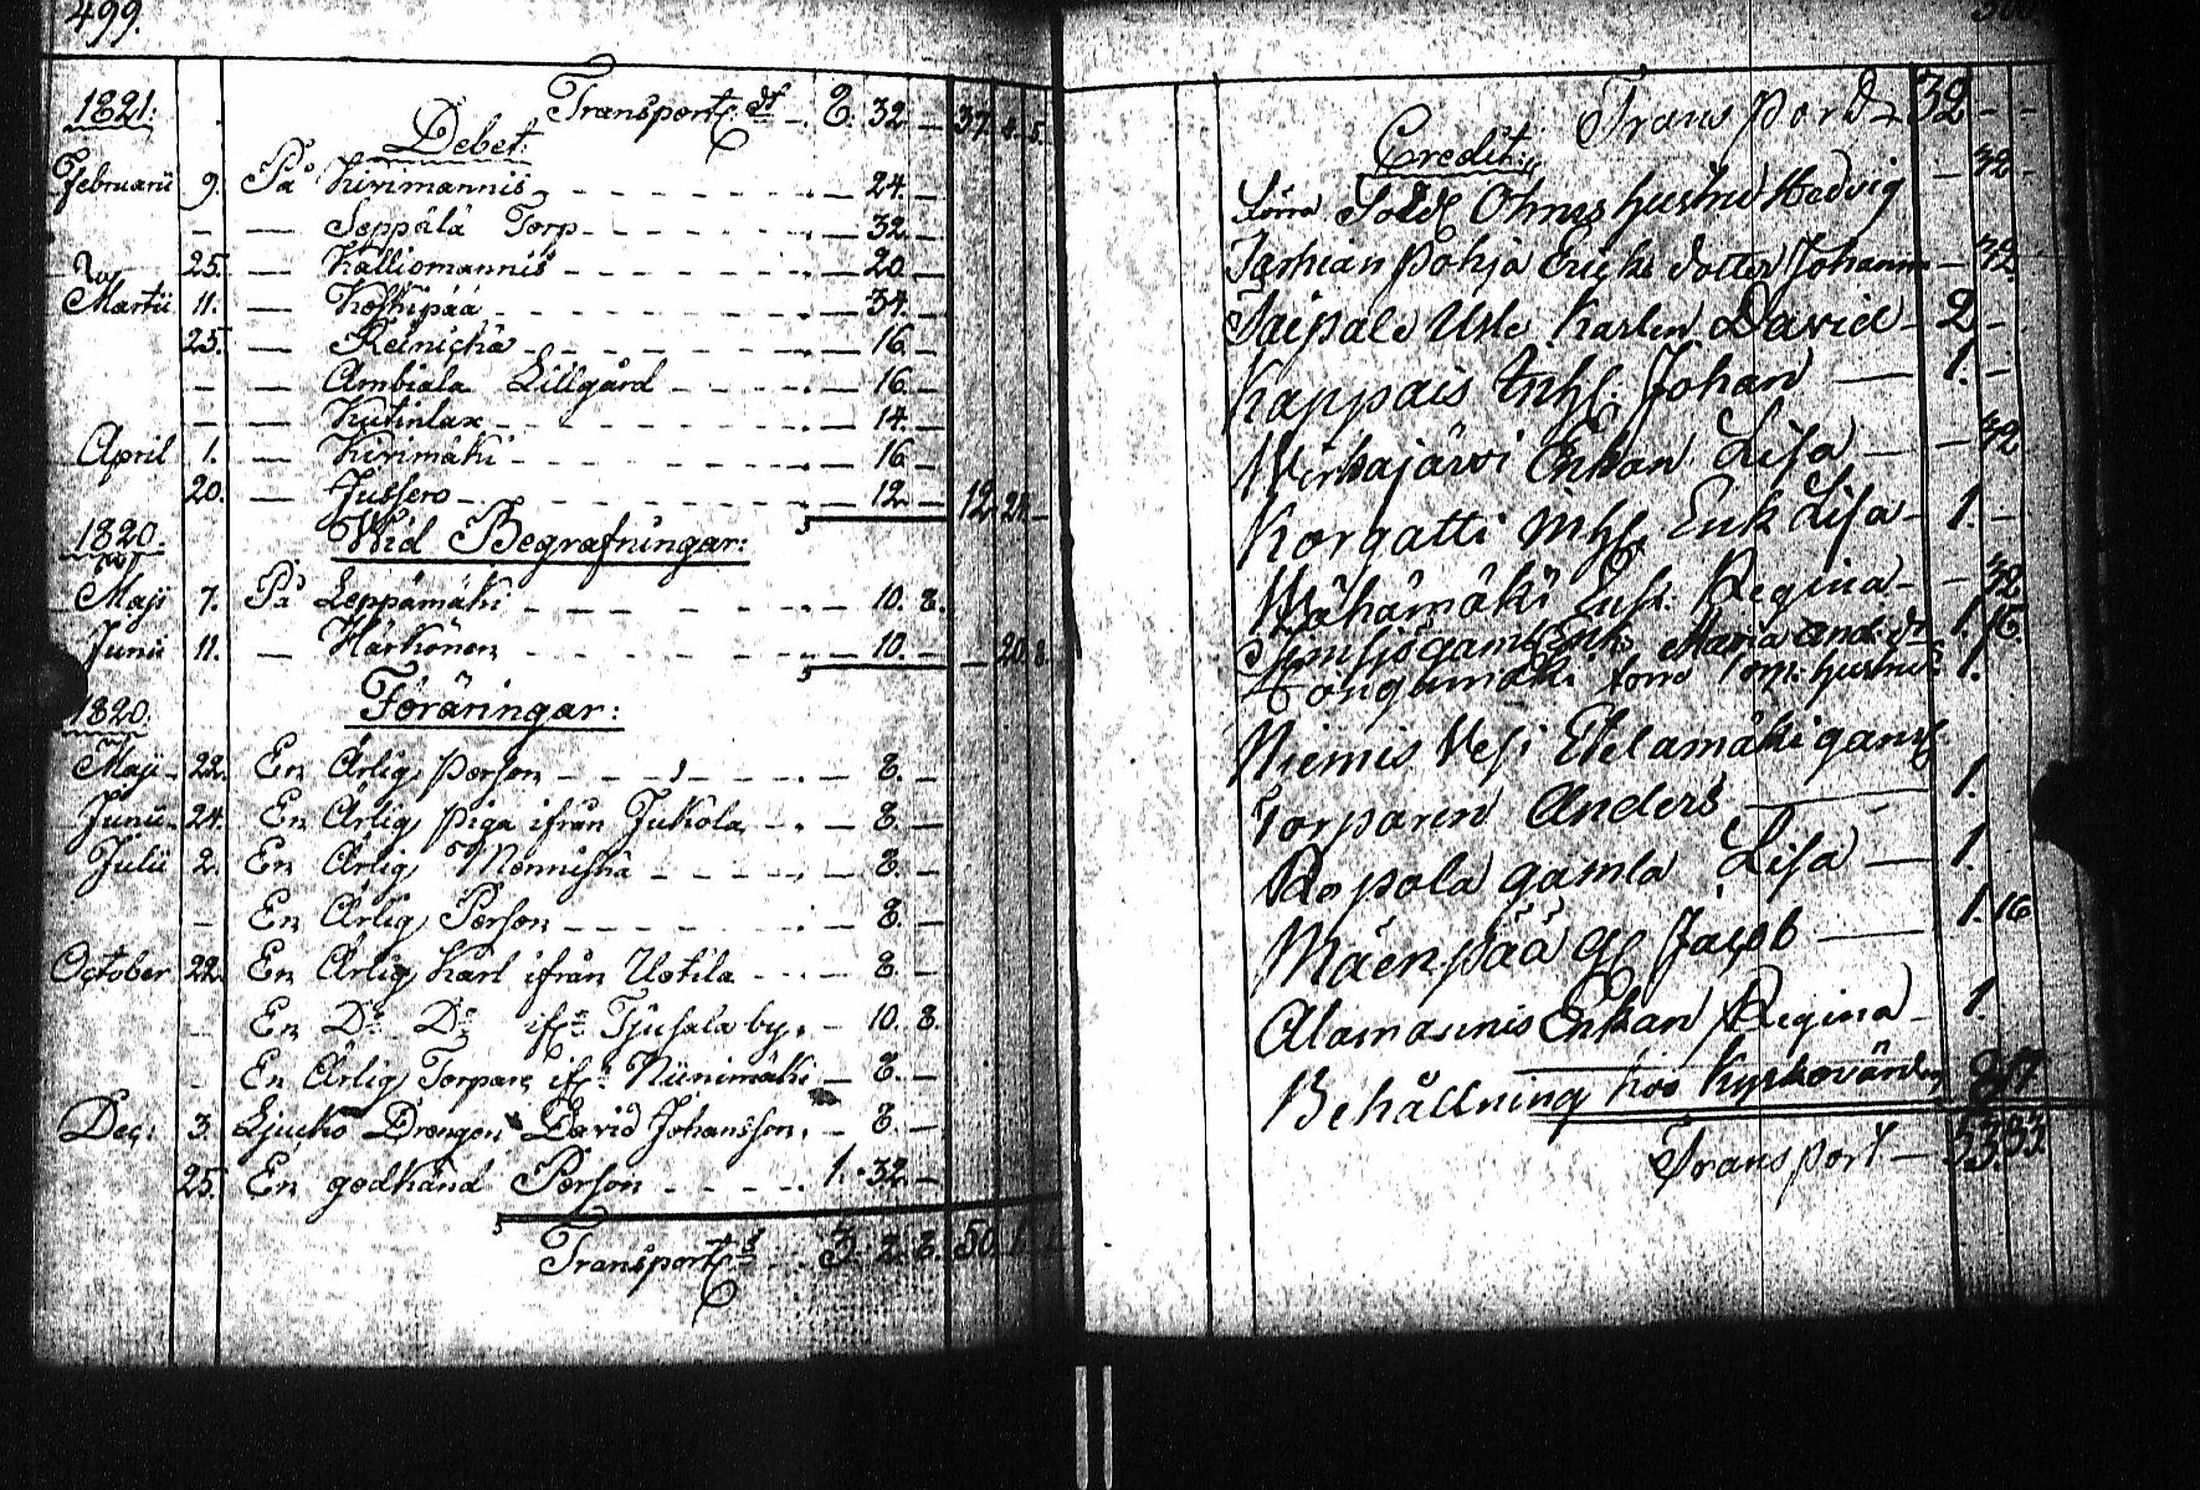 499.
1821. Transport 8. 32. — 37. 8. 5.
Debet:
Februarii 9. På Kirimannis — 24. —
— — Seppälä Torp — 32. —
25. — Kalliomannis — 20. —
Martii 11. — Koskipää — 34. —
25. — Reinickä — 16. —
— — Ambiala Lillgård — 16. —
— — Kutinlax — 14. —
April 1. — Kirimäki — 16. —
20. — Jussero — 12. — 12. 28. —
1820. Wid Begrafningar:
Maji 7. På Leppämäki — 10. 8.
Junii 11. — Härkönen — 10. — — 20. 8.
1820. Föräringar:
Maji 22. En Ärlig Person — 8. —
Junii 24. En Ärlig Piga ifrån Jukola — 8. —
Julii 2. En Ärlig Menniskia — 8. —
— En Ärlig Person — 8. —
October 22. En Ärlig Karl ifrån Uotila — 8. —
— En Do Do ifrn Tjusala by — 10. 8.
— En Ärlig Torpare ifrn Niinimäki — 8. —
Dec: 3. Ljucko Drengen David Johansson — 8. —
25. En godkänd Person 1. 32. —
Transport 3. 2. 8. 50.
Transport 32 — —
Credit:
förra Sold Ohms hustru Hedvig — 32 —
Tarhian pohja Ericks dotter Johanna — 32.
Taipale Usle Karlen David 2 —
Kappais Inh. Johan — 1. —
Wirkajärvi Enkan Lisa — 32
Korgatti Inh. Erik Lisa 1. —
Mähämäki Enk. Regina — 32
gamla Enk. Maria And. dr 1. 16.
förra hustru 1.
Niemis Vesi Etelamäki gaml
Torparen Anders — 1.
Popola gamla Lisa — 1.
Mäenpää Gl Jacob — 1. 16
Alamannis Enkan Regina 1.
Behållning hos Kyrkovärden
Transport — 53.